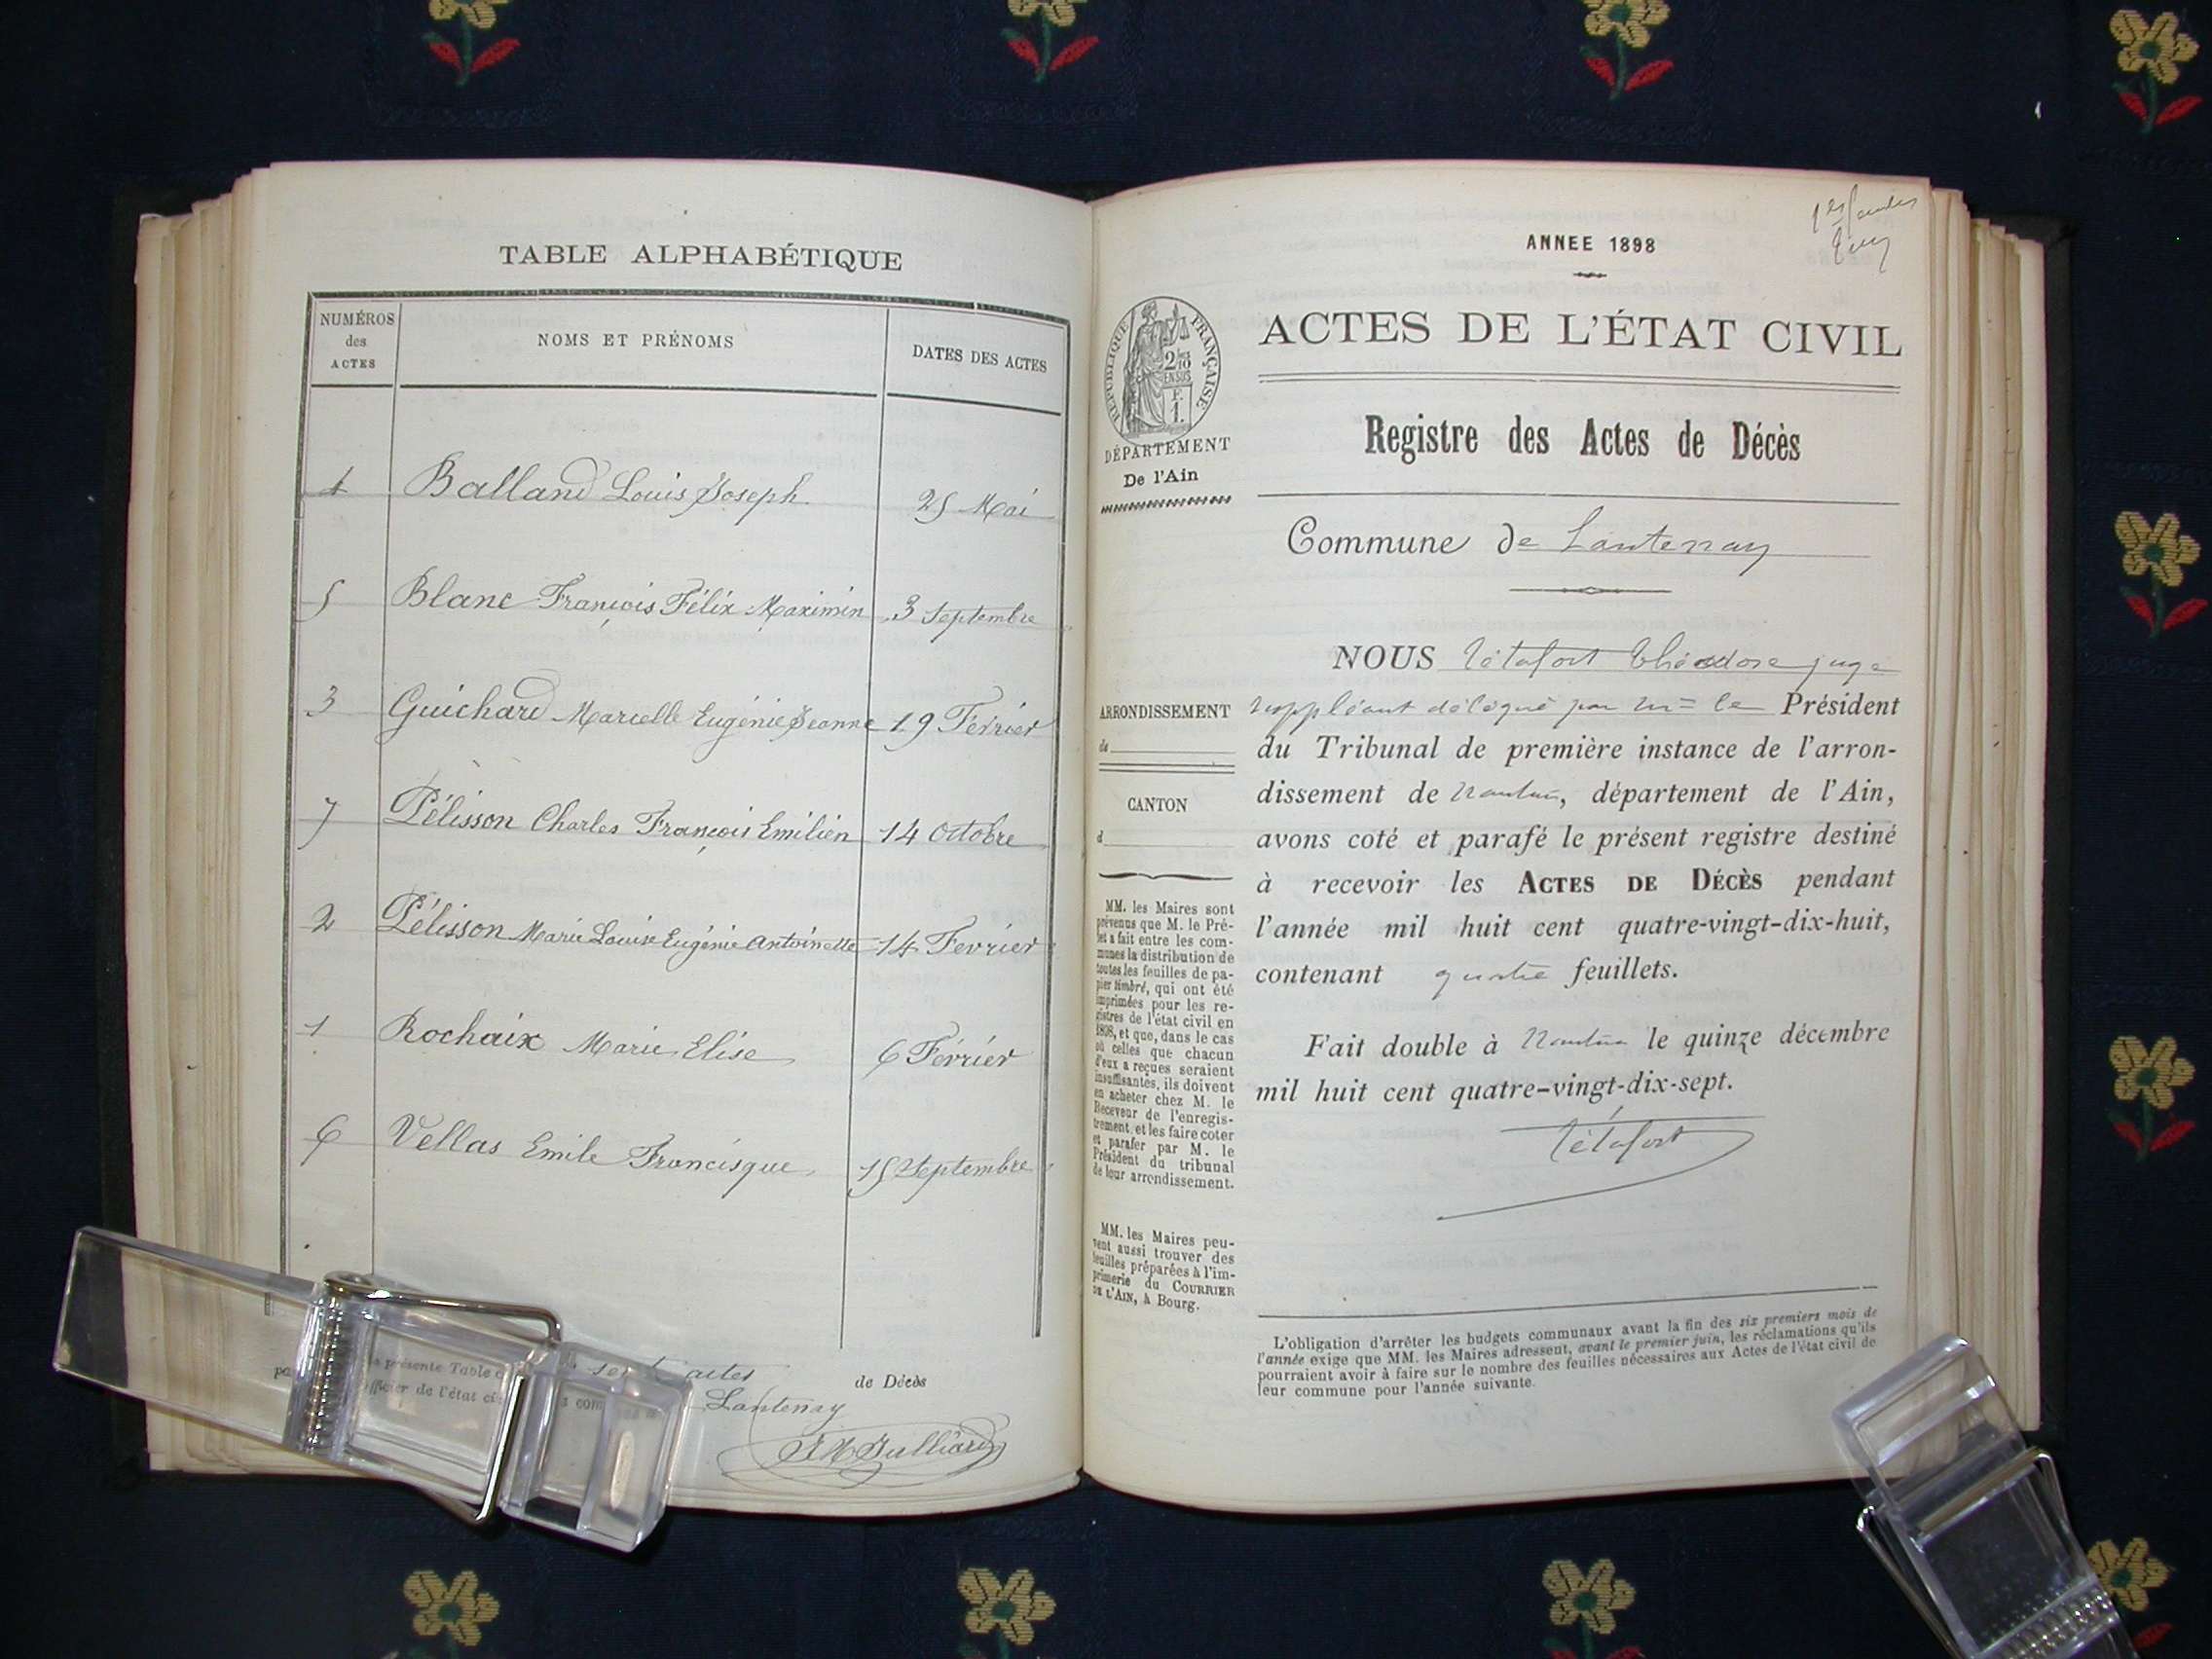 TABLE ALPHABÉTIQUE
NUMÉROS
des
ACTES
NOMS ET PRÉNOMS
DATES DES ACTES
4 Balland Louis Joseph 25 Mai
5 Blanc François Félix Maximin 3 Septembre
3 Guichard Marcelle Eugénie Jeanne 19 Février
7 Pélisson Charles François Emilien 14 Octobre
2 Pélisson Marie Louise Eugénie Antoinette 14 Fevrier
1 Rochaix Marie Elise 6 Février
6 Vellas Emile Francisque 15 Septembre
présente Table sept actes de Décès
officier de l'état Lantenay
ANNEE 1898
RÉPUBLIQUE FRANÇAISE
ACTES DE L'ÉTAT CIVIL
DÉPARTEMENT
De l'Ain
Registre des Actes de Décès
Commune de Lantenay
NOUS Tétafort Théodore juge
suppléant délégué par Mr le Président
du Tribunal de première instance de l'arron-
dissement de Nantua, département de l'Ain,
avons coté et parafé le présent registre destiné
à recevoir les ACTES DE DÉCÈS pendant
l'année mil huit cent quatre-vingt-dix-huit,
contenant quatre feuillets.
Fait double à Nantua le quinze décembre
mil huit cent quatre-vingt-dix-sept.
Tétafort
ARRONDISSEMENT
de
CANTON
d
MM. les Maires sont
prévenus que M. le Pré-
fet a fait entre les com-
munes la distribution de
toutes les feuilles de pa-
pier timbré, qui ont été
imprimées pour les re-
gistres de l'état civil en
1898, et que, dans le cas
où celles que chacun
d'eux a reçues seraient
insuffisantes, ils doivent
en acheter chez M. le
Receveur de l'enregis-
trement, et les faire coter
et parafer par M. le
Président du tribunal
de leur arrondissement.
MM. les Maires peu-
vent aussi trouver des
feuilles préparées à l'im-
primerie du COURRIER
DE L'AIN, à Bourg.
L'obligation d'arrêter les budgets communaux avant la fin des six premiers mois de
l'année exige que MM. les Maires adressent, avant le premier juin, les réclamations qu'ils
pourraient avoir à faire sur le nombre des feuilles nécessaires aux Actes de l'état civil de
leur commune pour l'année suivante.